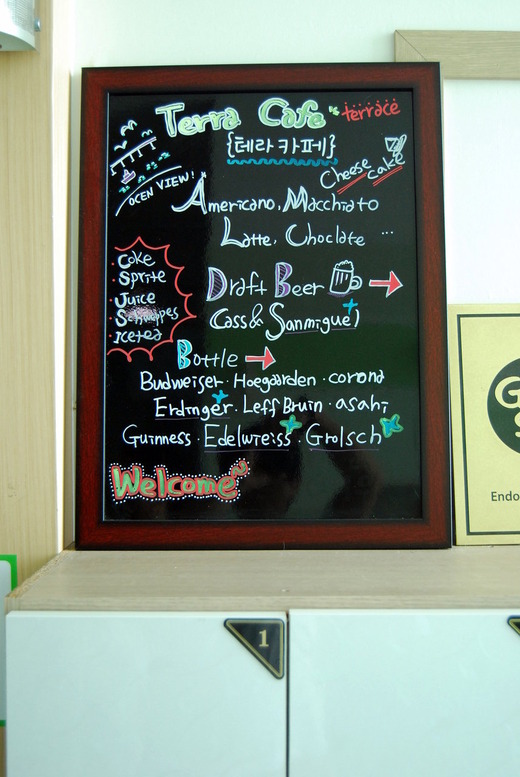 Terra Cafe terrace
{테라 카페}
OCEN VIEW!
Cheese cake
Americano, Macchiato
Latte, Choclate ...
Coke
Sprite
Juice
Schweppes
Icetea
Draft Beer
Cass & Sanmiguel
Bottle
Budweiser · Hoegaarden · corona
Erdinger · Leff Bruin · asahi
Guinness · Edelwreiss · Grolsch
Welcome
1
Endo